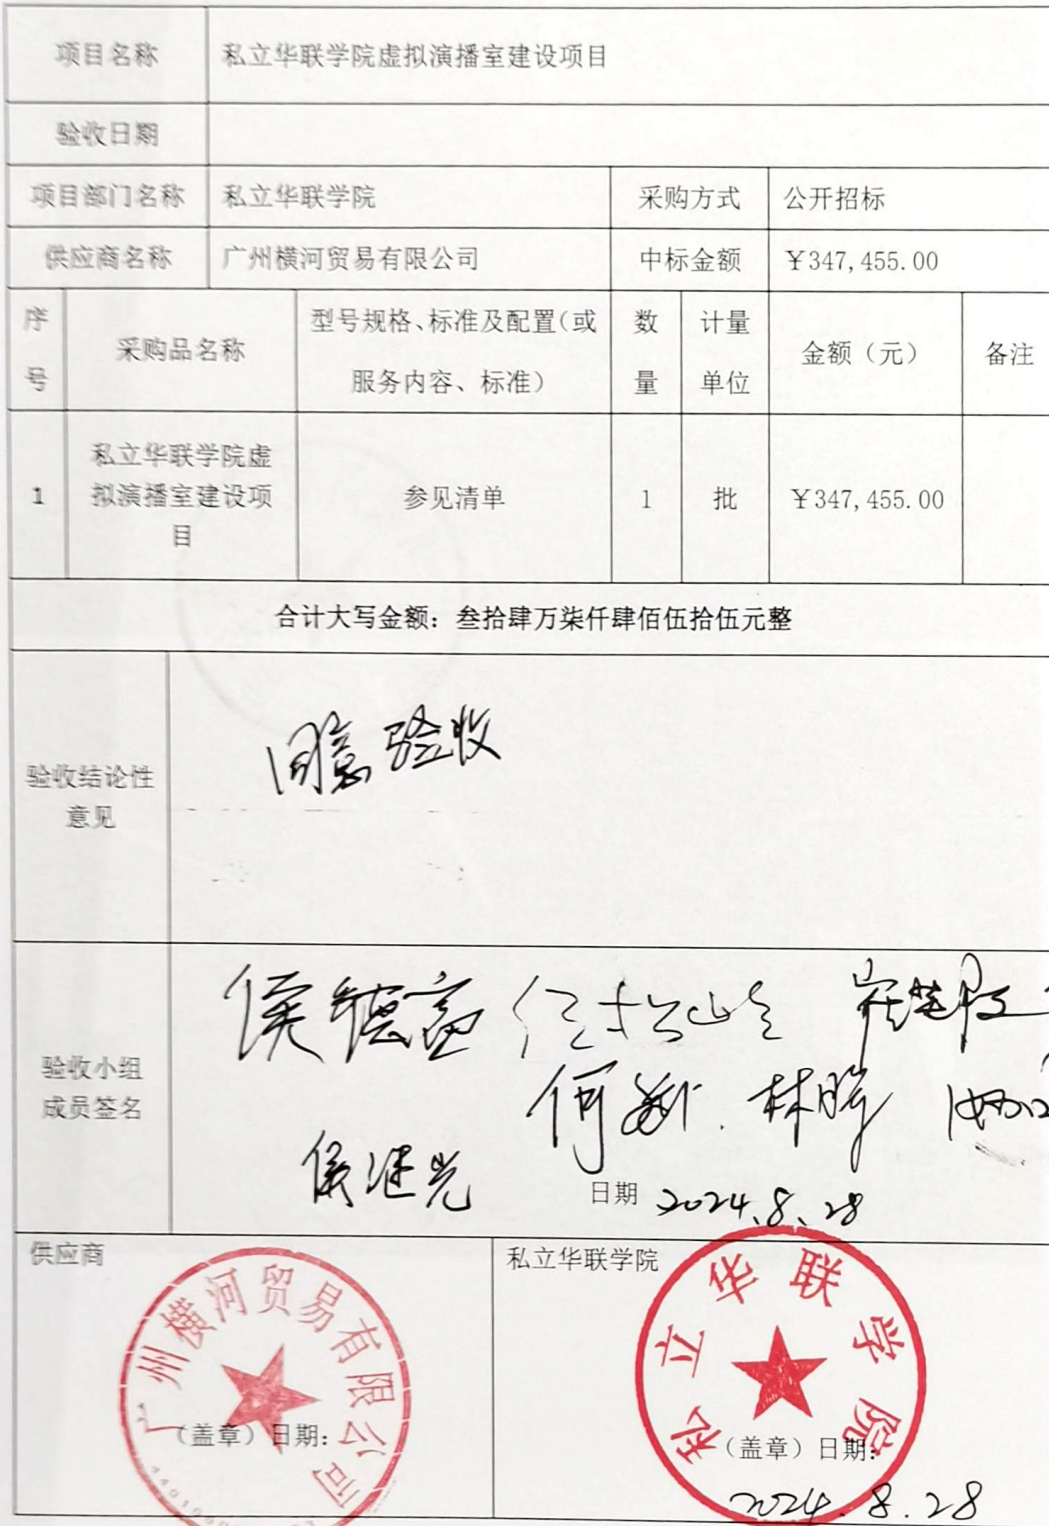 项目名称 私立华联学院虚拟演播室建设项目
验收日期
项目部门名称 私立华联学院 采购方式 公开招标
供应商名称 广州横河贸易有限公司 中标金额 ￥347,455.00
序号 采购品名称 型号规格、标准及配置（或服务内容、标准） 数量 计量单位 金额（元） 备注
1 私立华联学院虚拟演播室建设项目 参见清单 1 批 ￥347,455.00
合计大写金额：叁拾肆万柒仟肆佰伍拾伍元整
验收结论性意见 同意验收
验收小组成员签名
何新 林晖
侯继光
日期 2024.8.28
供应商
广州横河贸易有限公司
（盖章）日期：
私立华联学院
私立华联学院
（盖章）日期：
2024.8.28